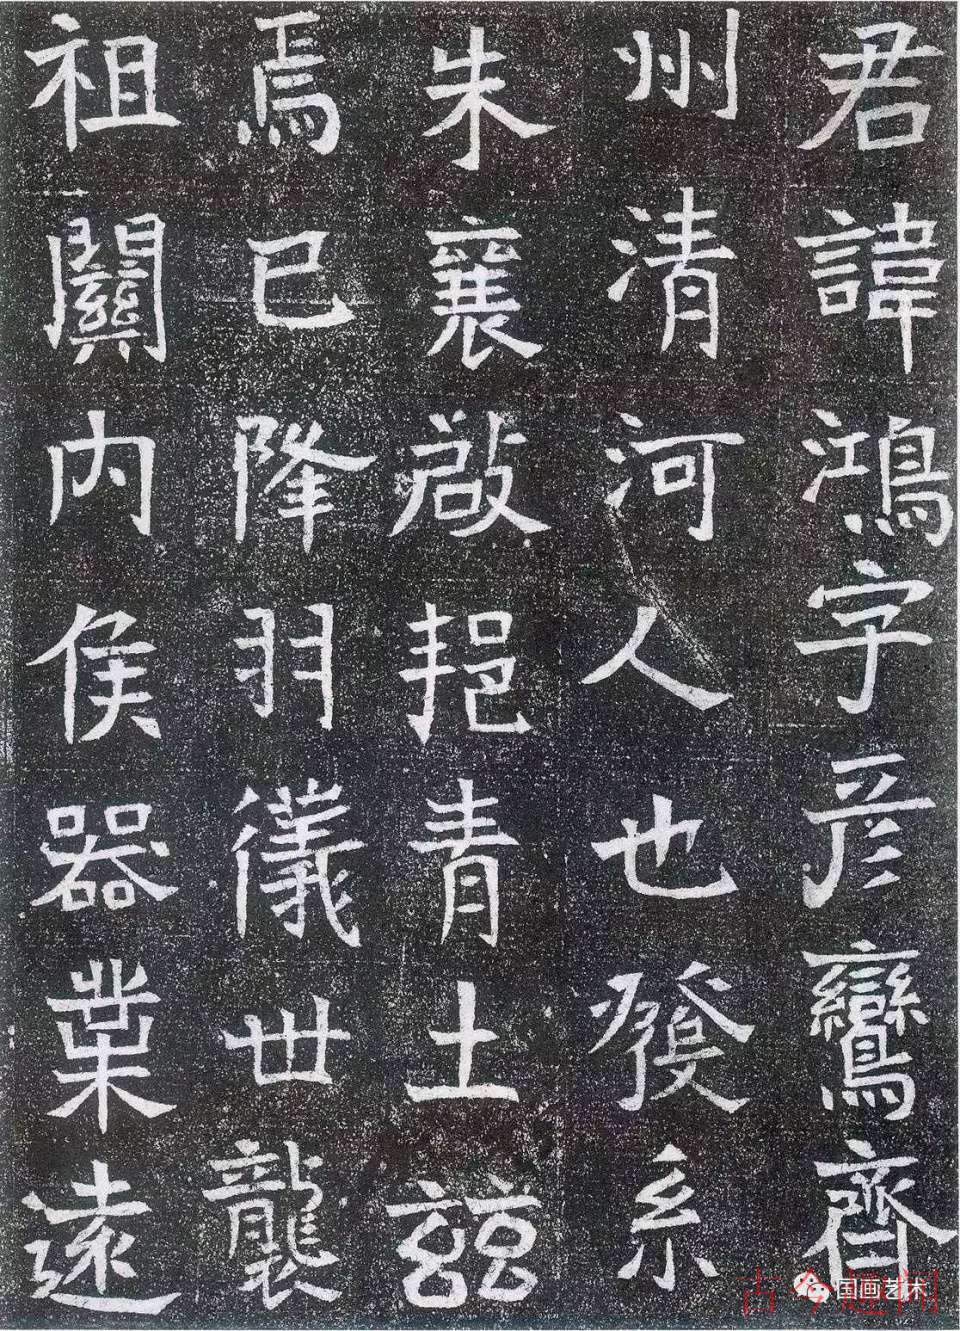 君諱鴻字彦鸞齊
州清河人也發系
朱襄啟挹青土兹
焉已降羽儀世襲
祖關内侯器業遠
国画艺术
古今趣闻